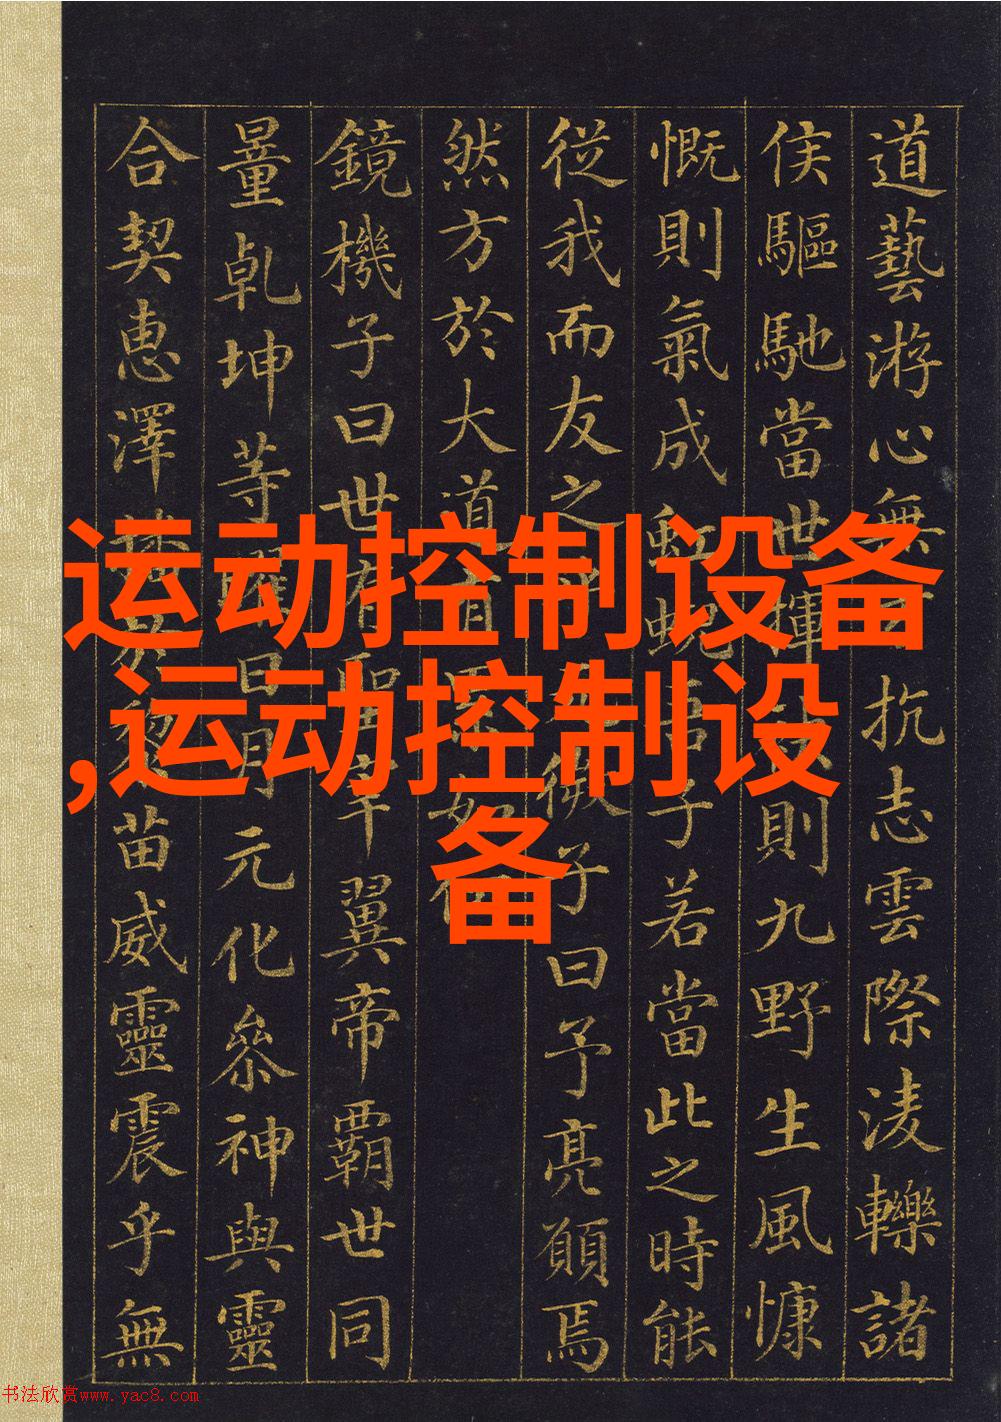 道藝游心無抗志雲際淩轢諸
侯驅馳當世揮則九野生風慷
慨則氣成虹蜺吾子若當此之時能
從我而友之微子曰予亮願焉
然方於大道有如
鏡機子曰世有聖宰翼帝霸世同
量乹坤等曜日月元化叅神與靈
合契惠澤於黎苗威靈震乎無
运动控制设备
,运动控制设
备
书法欣赏www.yac8.com